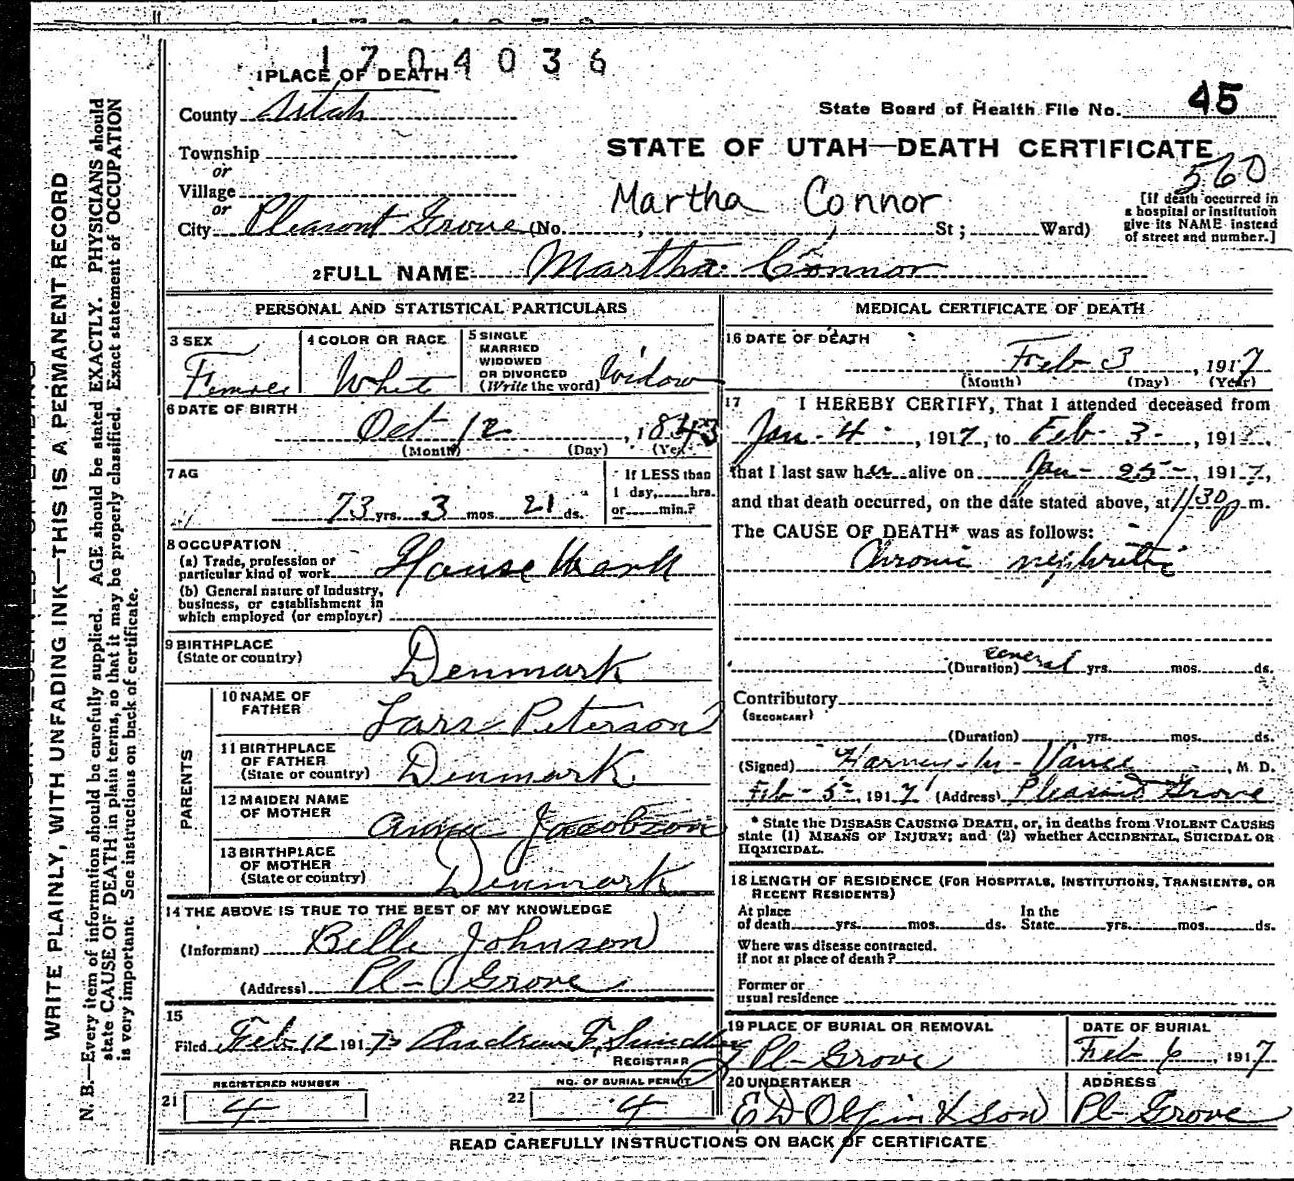 1704036
1 PLACE OF DEATH
County Utah
State Board of Health File No. 45
STATE OF UTAH—DEATH CERTIFICATE
Township
or
Village
or
City Pleasant Grove (No. , St; Ward)
Martha Connor
560
[If death occurred in
a hospital or institution
give its NAME instead
of street and number.]
2 FULL NAME Martha Connor
PERSONAL AND STATISTICAL PARTICULARS
3 SEX
Female
4 COLOR OR RACE
White
5 SINGLE
MARRIED
WIDOWED
OR DIVORCED
(Write the word) Widow
6 DATE OF BIRTH
Oct 12, 1843
(Month) (Day) (Year)
7 AG
73 yrs. 3 mos. 21 ds.
If LESS than
1 day, hrs.
or min.?
8 OCCUPATION
(a) Trade, profession or
particular kind of work House Work
(b) General nature of industry,
business, or establishment in
which employed (or employer)
9 BIRTHPLACE
(State or country) Denmark
PARENTS
10 NAME OF
FATHER Lars Peterson
11 BIRTHPLACE
OF FATHER
(State or country) Denmark
12 MAIDEN NAME
OF MOTHER Anna Jacobson
13 BIRTHPLACE
OF MOTHER
(State or country) Denmark
14 THE ABOVE IS TRUE TO THE BEST OF MY KNOWLEDGE
(Informant) Belle Johnson
(Address) Pl- Grove
15
Filed Feb 12 1917
REGISTRAR
REGISTERED NUMBER
21 4
NO. OF BURIAL PERMIT
22 4
MEDICAL CERTIFICATE OF DEATH
16 DATE OF DEATH
Feb 3, 1917
(Month) (Day) (Year)
17 I HEREBY CERTIFY, That I attended deceased from
Jan- 4-, 1917, to Feb- 3-, 1917,
that I last saw her alive on Jan- 25-, 1917,
and that death occurred, on the date stated above, at 1/30 p m.
The CAUSE OF DEATH* was as follows:
Chronic nephritis
(Duration) several yrs. mos. ds.
Contributory
(SECONDARY)
(Duration) yrs. mos. ds.
(Signed) Vance, M. D.
Feb- 5-, 1917 (Address) Pleasant Grove
* State the DISEASE CAUSING DEATH, or, in deaths from VIOLENT CAUSES
state (1) MEANS OF INJURY; and (2) whether ACCIDENTAL, SUICIDAL OR
HOMICIDAL.
18 LENGTH OF RESIDENCE (FOR HOSPITALS, INSTITUTIONS, TRANSIENTS, OR
RECENT RESIDENTS)
At place
of death yrs. mos. ds.
In the
State yrs. mos. ds.
Where was disease contracted.
if not at place of death?
Former or
usual residence
19 PLACE OF BURIAL OR REMOVAL
Pl- Grove
DATE OF BURIAL
Feb 6, 1917
20 UNDERTAKER
E D Olpin & Son
ADDRESS
Pl- Grove
READ CAREFULLY INSTRUCTIONS ON BACK OF CERTIFICATE
WRITE PLAINLY, WITH UNFADING INK—THIS IS A PERMANENT RECORD
N. B.—Every item of information should be carefully supplied. AGE should be stated EXACTLY. PHYSICIANS should
state CAUSE OF DEATH in plain terms, so that it may be properly classified. Exact statement of OCCUPATION
is very important. See instructions on back of certificate.